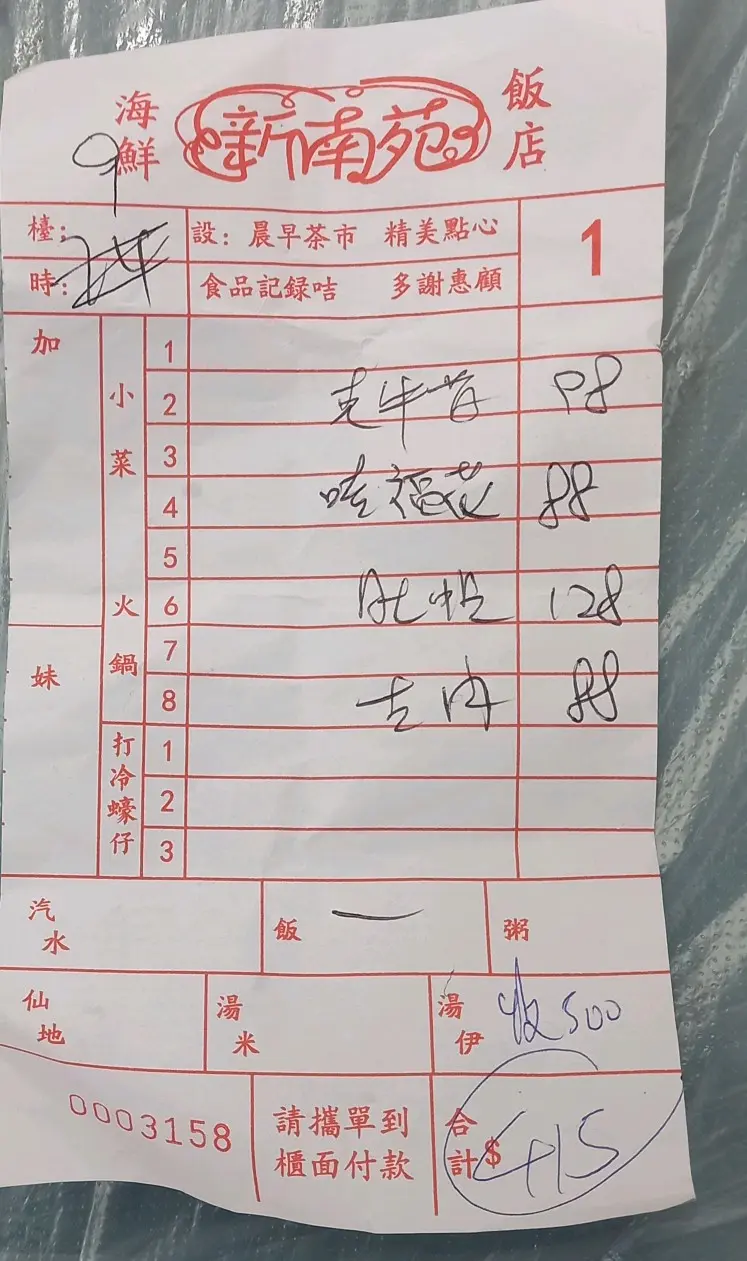 海鮮 新南苑 飯店
9
檯：
設：晨早茶市 精美點心
1
時：
食品記録咭 多謝惠顧
加
小菜 火鍋
1
2 98
3
4 88
5
妹
6 128
7
8 古肉 88
打冷蠔仔
1
2
3
汽水
飯 一
粥
仙地
湯米
湯伊 收500
0003158
請攜單到
櫃面付款
合計$ 415